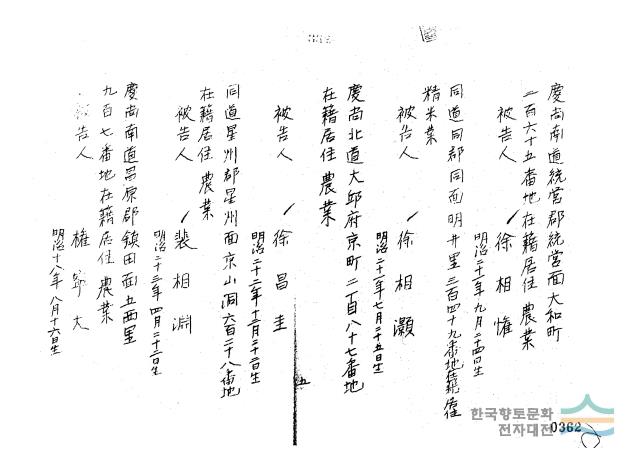 慶尚南道統営郡統営面大和町
二百六十五番地在籍居住 農業
被告人 徐相懽
明治二十一年九月二十四日生
同道同郡同面明井里三百四十九番地在籍居住
精米業
被告人 徐相灝
明治二十一年七月二十五日生
慶尚北道大邱府京町二丁目八十七番地
在籍居住 農業
被告人 徐昌圭
明治二十二年十二月二十二日生
同道星州郡星州面京山洞六百二十八番地
在籍居住 農業
被告人 裴相淵
明治二十三年四月二十二日生
慶尚南道昌原郡鎮田面五西里
九百七番地在籍居住 農業
被告人 權
明治十八年八月十六日生
五
한국향토문화
전자대전
0362